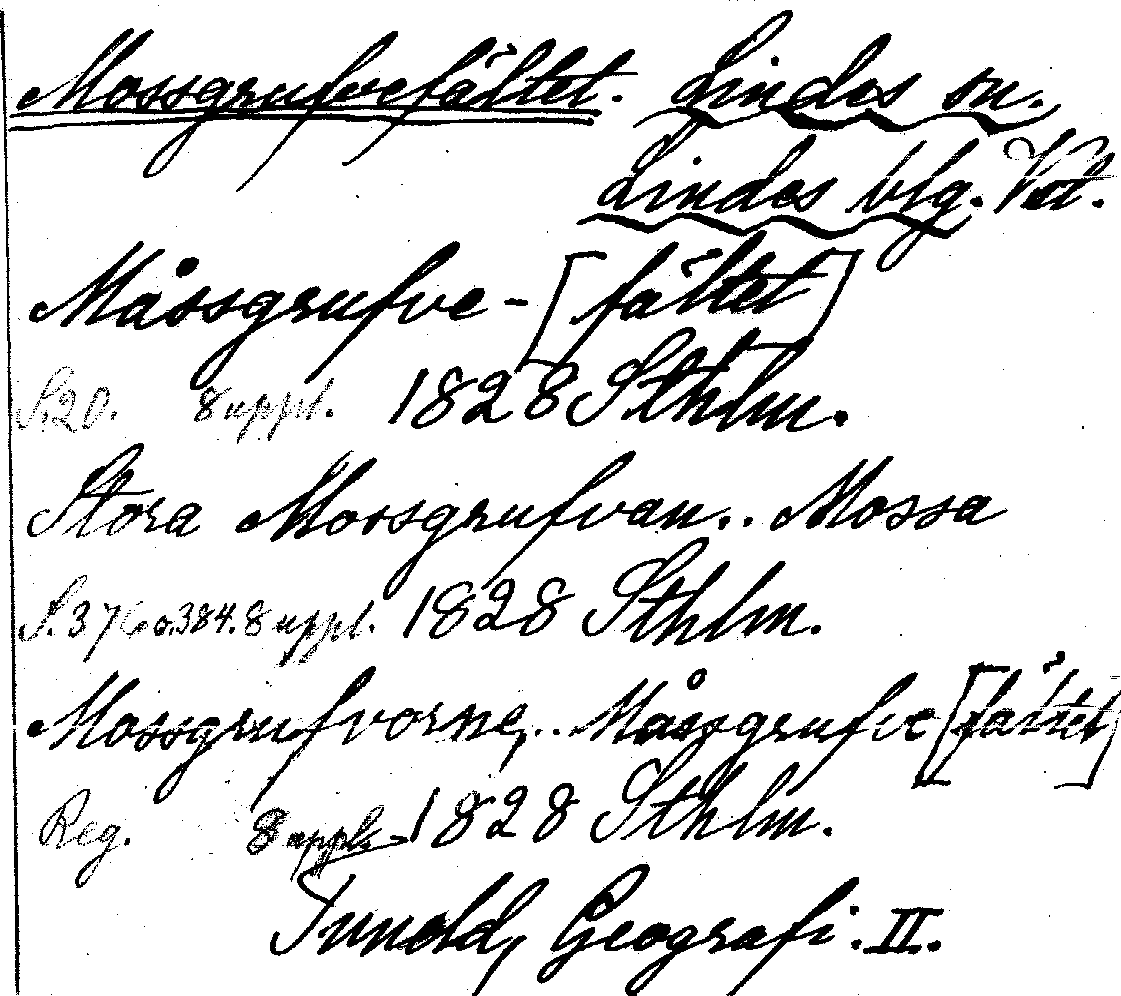 Mossgrufvefältet. Lindes sn.
Lindes blg. Vstl.
Måssgrufve-[fältet]
S.20. 8 uppl. 1828 Sthlm.
Stora Mossgrufvan.. Mossa
S.376 o.384. 8 uppl. 1828 Sthlm.
Mossgrufvorne,.. Måssgrufve[fältet]
Reg. 8 uppl. 1828 Sthlm.
Tunold, Geografi. II.